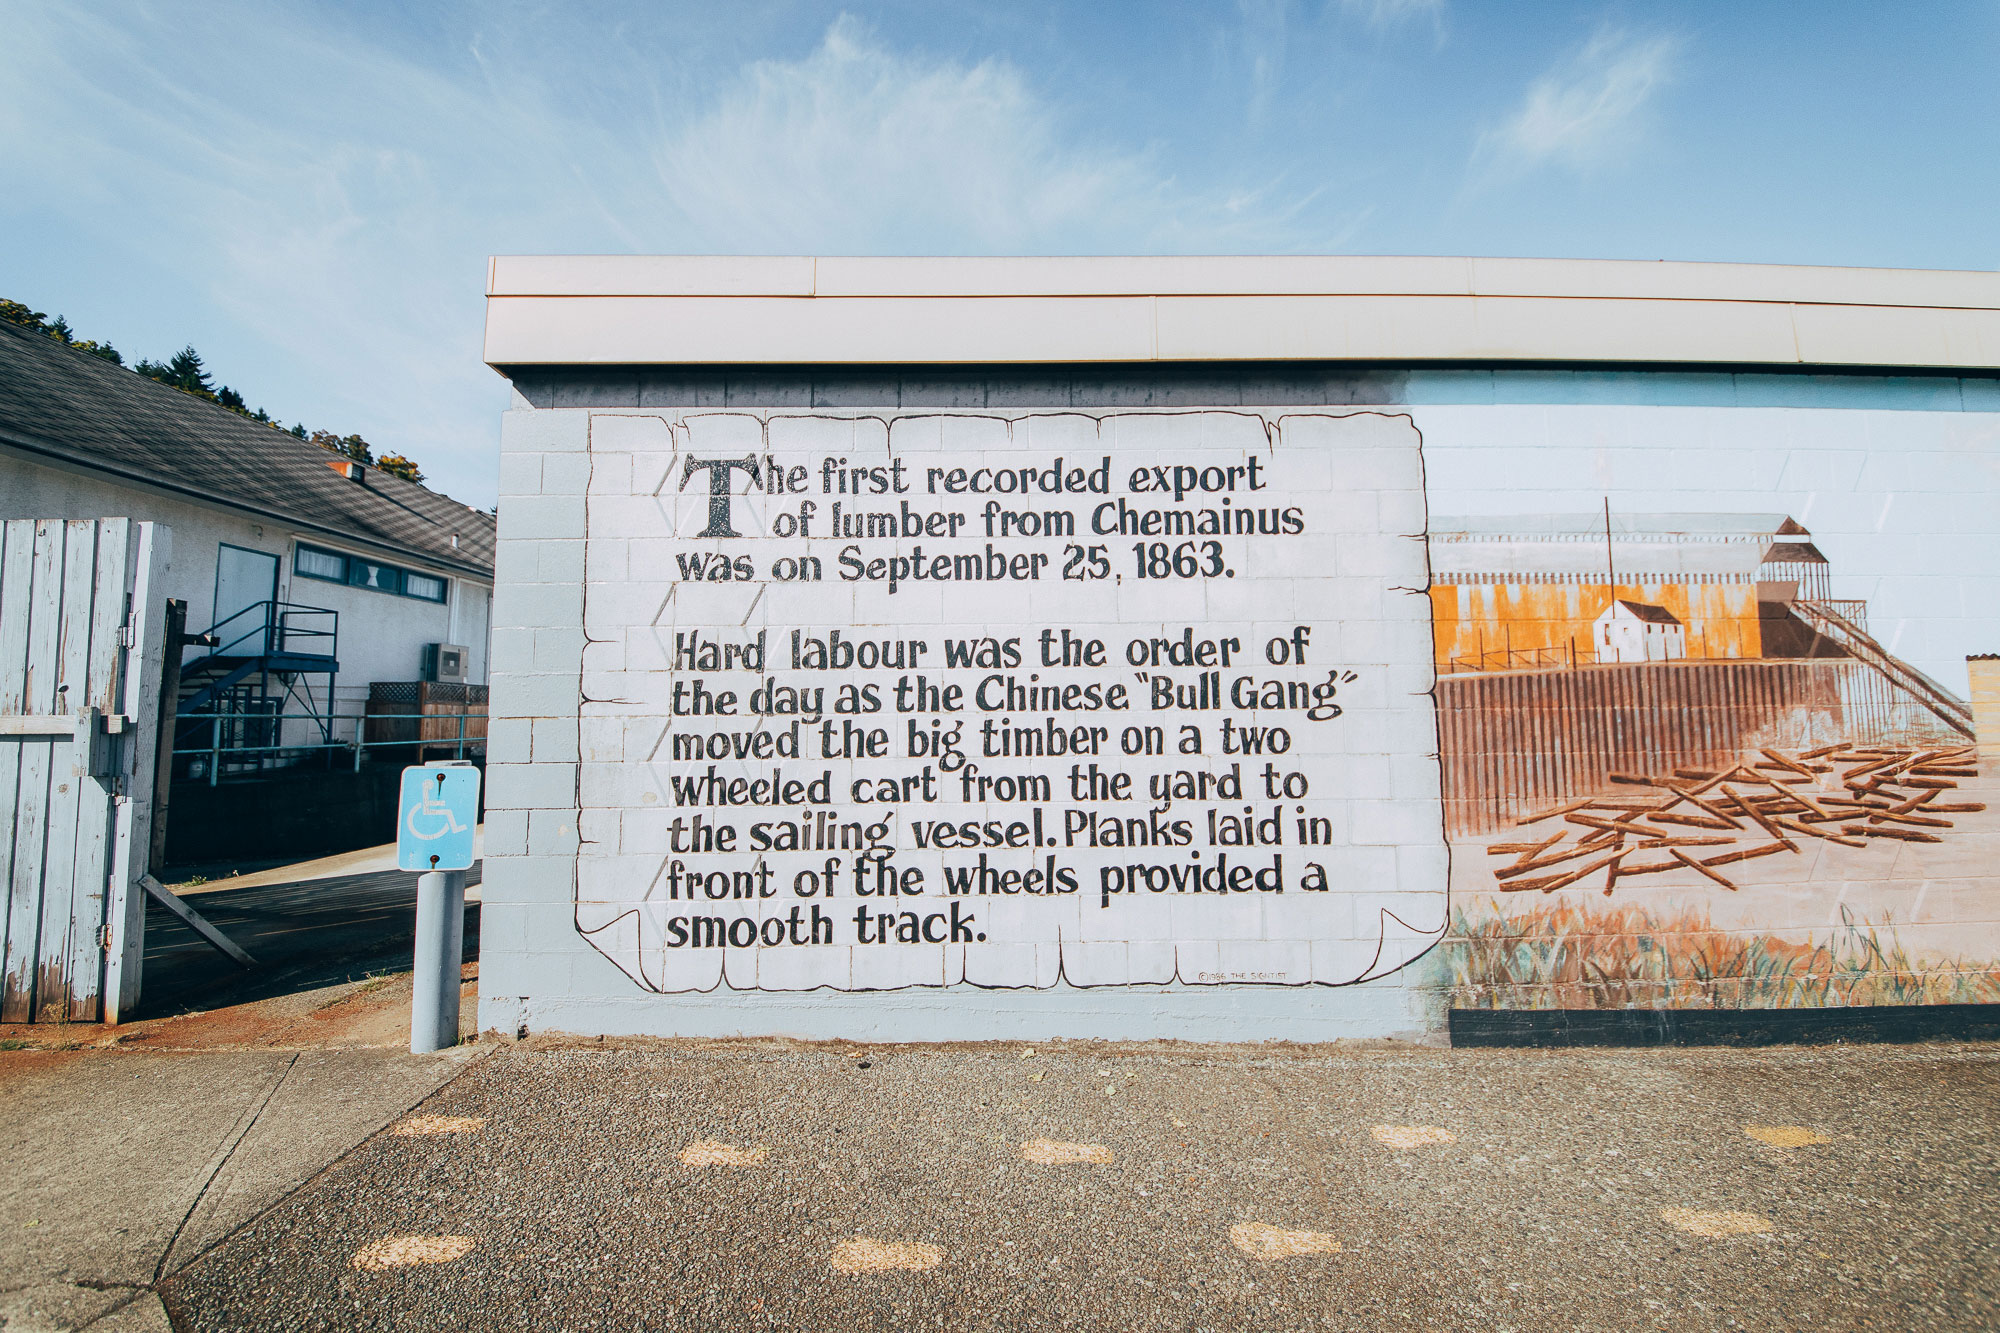 The first recorded export
of lumber from Chemainus
was on September 25, 1863.
Hard labour was the order of
the day as the Chinese "Bull Gang"
moved the big timber on a two
wheeled cart from the yard to
the sailing vessel. Planks laid in
front of the wheels provided a
smooth track.
©1986 THE SIGNTIST